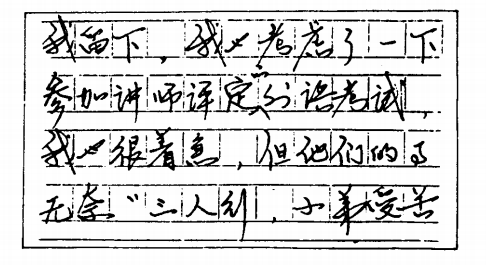 我留下，我也考虑了一下
参加讲师评定外语考试，
我也很着急，但他们的事
无奈“三人行，小弟受苦